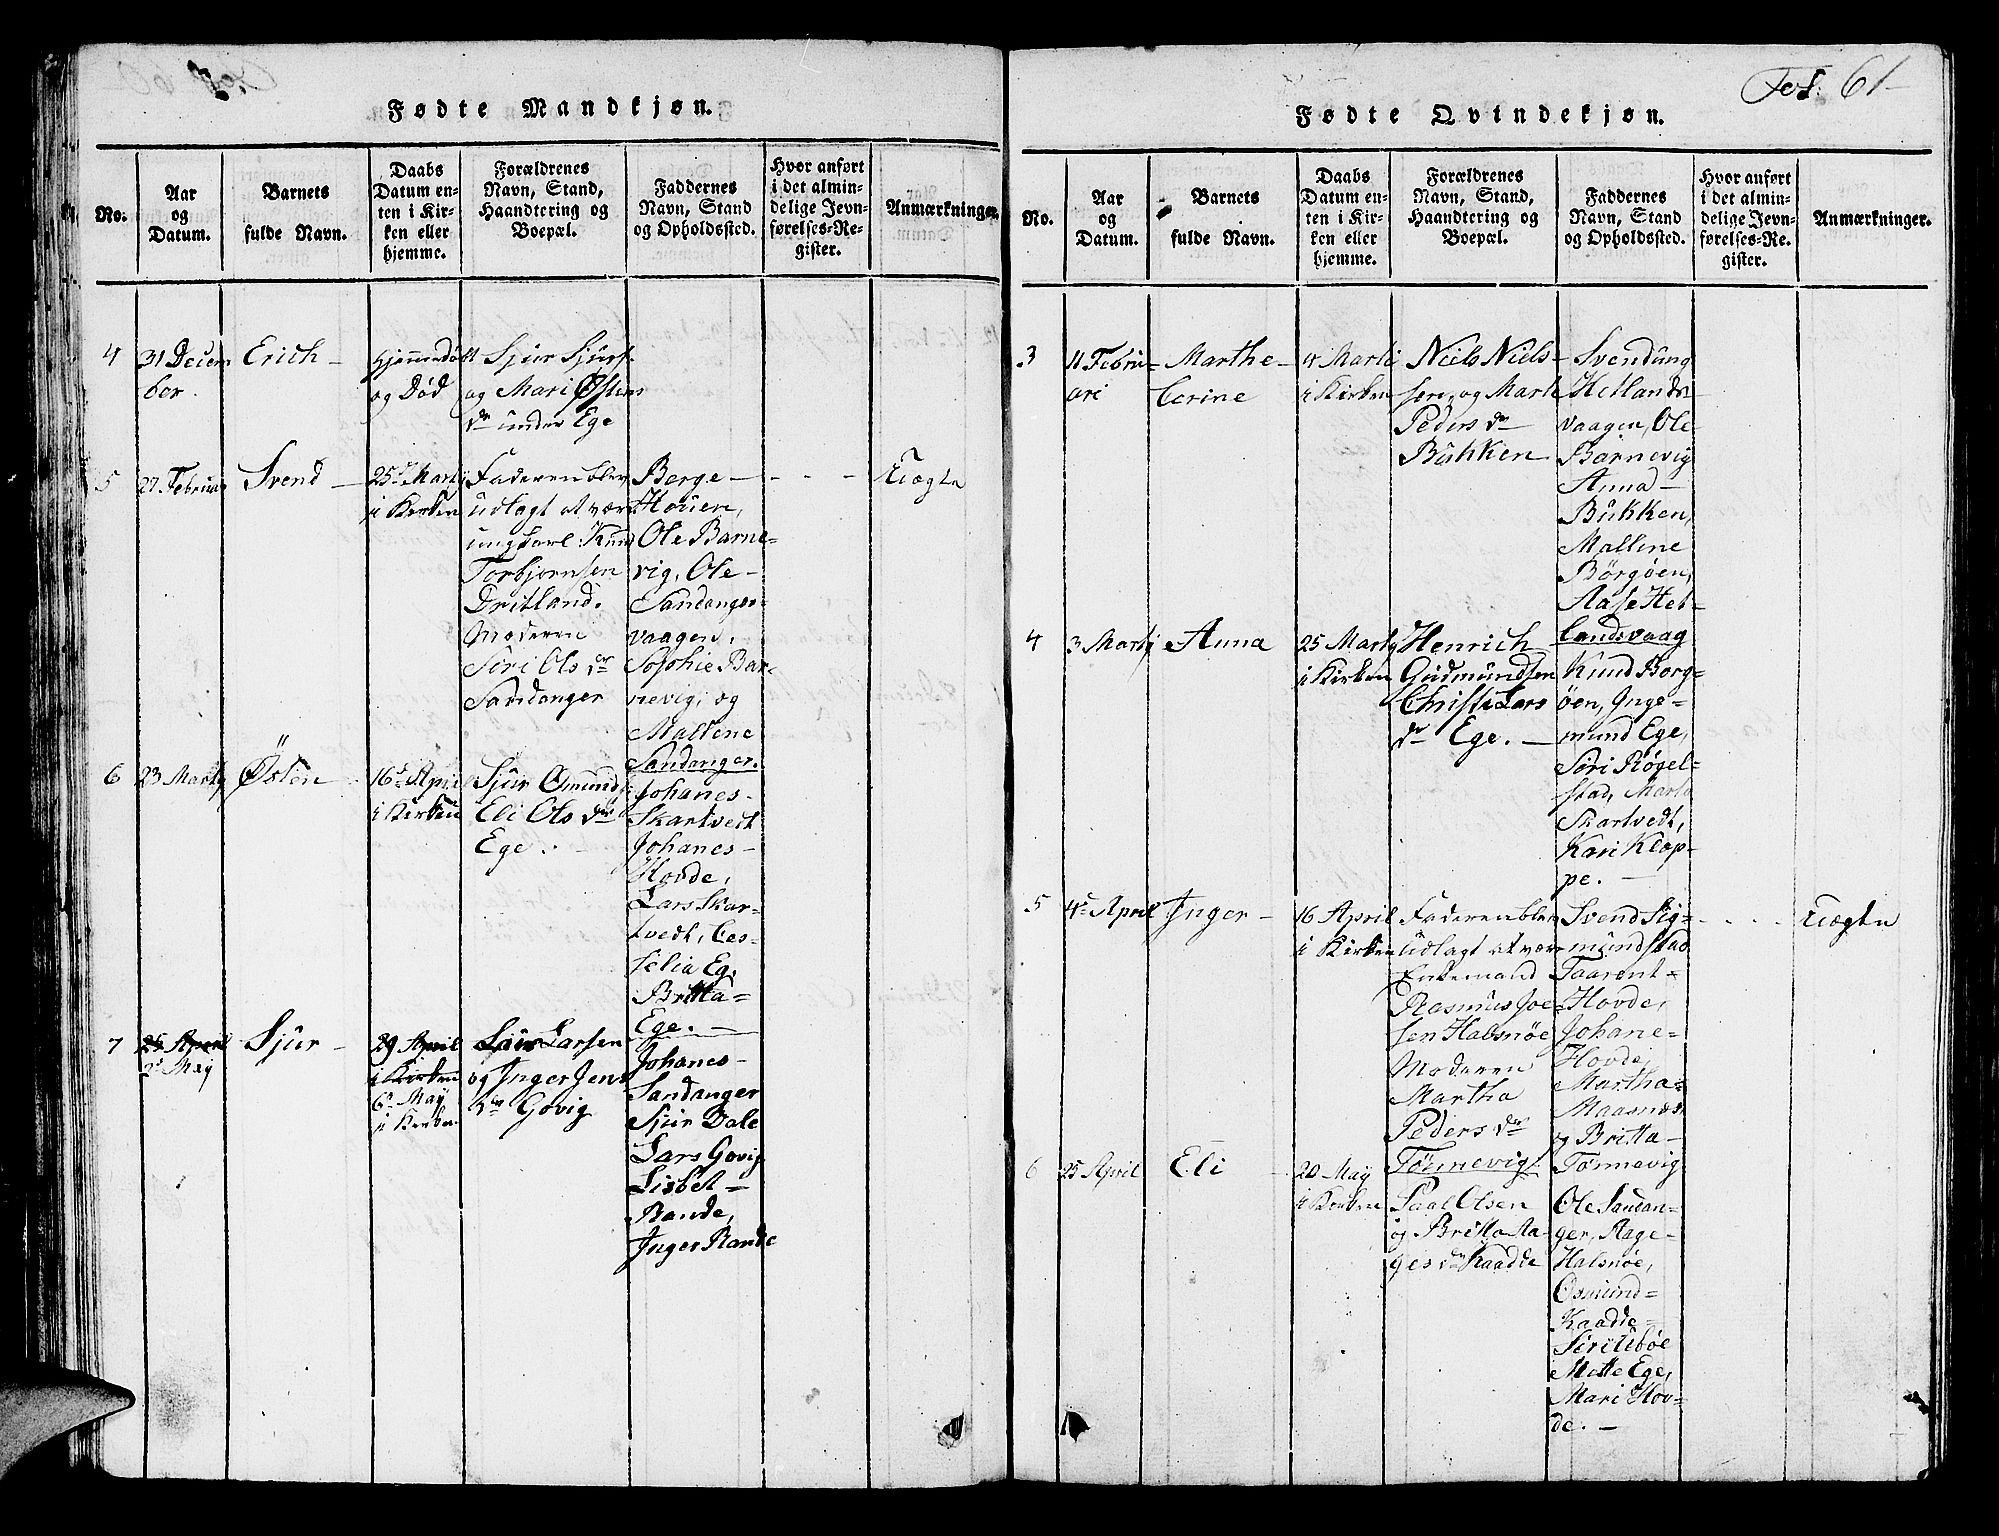 Fol: 61
Fødte Mandkjøn.
No.
Aar
og
Datum.
Barnets
fulde Navn.
Daabs
Datum en-
ten i Kir-
ken eller
hjemme.
Forældrenes
Navn, Stand,
Haandtering og
Boepæl.
Faddernes
Navn, Stand
og Opholdssted.
Hvor anført
i det almin-
delige Jevn-
førelses-Re-
gister.
Anmærkninger.
4
31 Decem
ber
Erich
hjemmedøbt
og Død
Sjur Sjurs.
og Mari Østens
dr under Ege
5
27 Februar
Svend
25 Martij
i Kirken
Faderen blev
udlagt at være
ungkarl Knud
Torbjørnsen
Dritland.
Moderen
Siri Ols dr
Sandanger
Berge
Houen,
Ole Barne-
vig, Ole
Sandanger-
vaagen,
Sophie Bar-
nevig, og
Mallene
Sandanger.
Uægte
6
23 Martij
Østen
16 April
i Kirken
Sjur Omunds
Eli Ols dr
Ege.
Johanes
Skartvedt
Johanes
Hovde,
Lars Skar-
tvedt, Ces-
selia Eg,
Britta
Ege.
7
25 April
2 Maj
Sjur
29 April
i Kirken
6 Maj
i Kirken
Siur Larsen
og Inger Jens
dr Govig
Johanes
Sandanger
Sjur Dale
Lars Govig
Lisbet
Rande,
Inger Rande
Fødte Qvindekjøn.
No.
Aar
og
Datum.
Barnets
fulde Navn.
Daabs
Datum en-
ten i Kir-
ken eller
hjemme.
Forældrenes
Navn, Stand,
Haandtering og
Boepæl.
Faddernes
Navn, Stand
og Opholdssted.
Hvor anført
i det almin-
delige Jevn-
førelses-Re-
gister.
Anmærkninger.
3
11 Febru-
ari
Marthe
Cerine
4 Marti
i Kirken
Niels Niels-
sen, og Marte
Peders dr
Bukken
Svendung
Hetlands-
vaagen, Ole
Barnevig
Anna
Bukken,
Mallene
Børgøen,
Aase Het-
landsvaag
4
3 Martij
Anna
25 Martij
i Kirken
Henrich
Gudmundsen
Christi Lars
dr Ege.
Knud Borg-
øen, Inge-
mund Ege,
Siri Røgel-
stad, Marta
Skartvedt,
Kari Klop-
pe.
5
4 April
Inger
16 April
i Kirken
Faderen blev
udlagt at være
Enkemand
Rasmus Joe-
sen Halsnøe
Moderen
Martha
Peders dr
Tønnevig.
Svend Sig-
mundstad
Taarent
Hovde,
Johane
Hovde,
Martha
Maasnæs
og Britta
Tønnevig
Uægte
6
25 April
Eli
20 Maj
i Kirken
Paal Olsen
og Britta Aa-
ges dr Kaadde
Ole Sandan-
ger, Aage
Halsnøe,
Osmund
Kaadde
Mette Ege,
Mari Hov-
de.